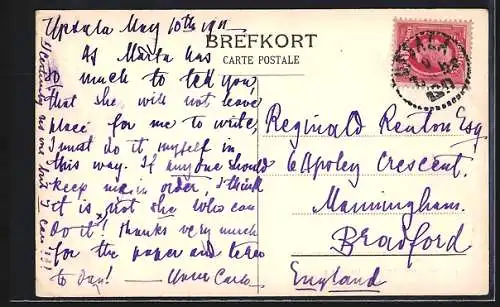 Upsala May 10th 1911
As Märta has
so much to tell you,
that she will not leave
place for me to write,
I must do it myself in
this way. If anyone should
keep me in order, I think
it is just she who can
do it! Thanks very much
for the paper and letter
to day! —
BREFKORT
CARTE POSTALE
Reginald Renton Esq
6 Apsley Crescent.
Manningham.
Bradford
England